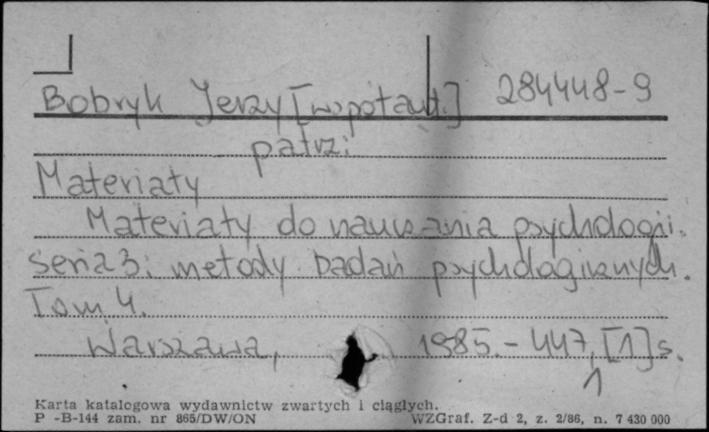 Bobryk Jerzy [współaut.] 284448-9
patrz:
Materiały
Materiały do nauczania psychologii.
Seria 3: metody badań psychologicznych.
Tom 4.
Warszawa, 1985. - 447, [1] s.
1
Karta katalogowa wydawnictw zwartych i ciągłych.
P -B-144 zam. nr 865/DW/ON WZGraf. Z-d 2, z. 2/86, n. 7 430 000